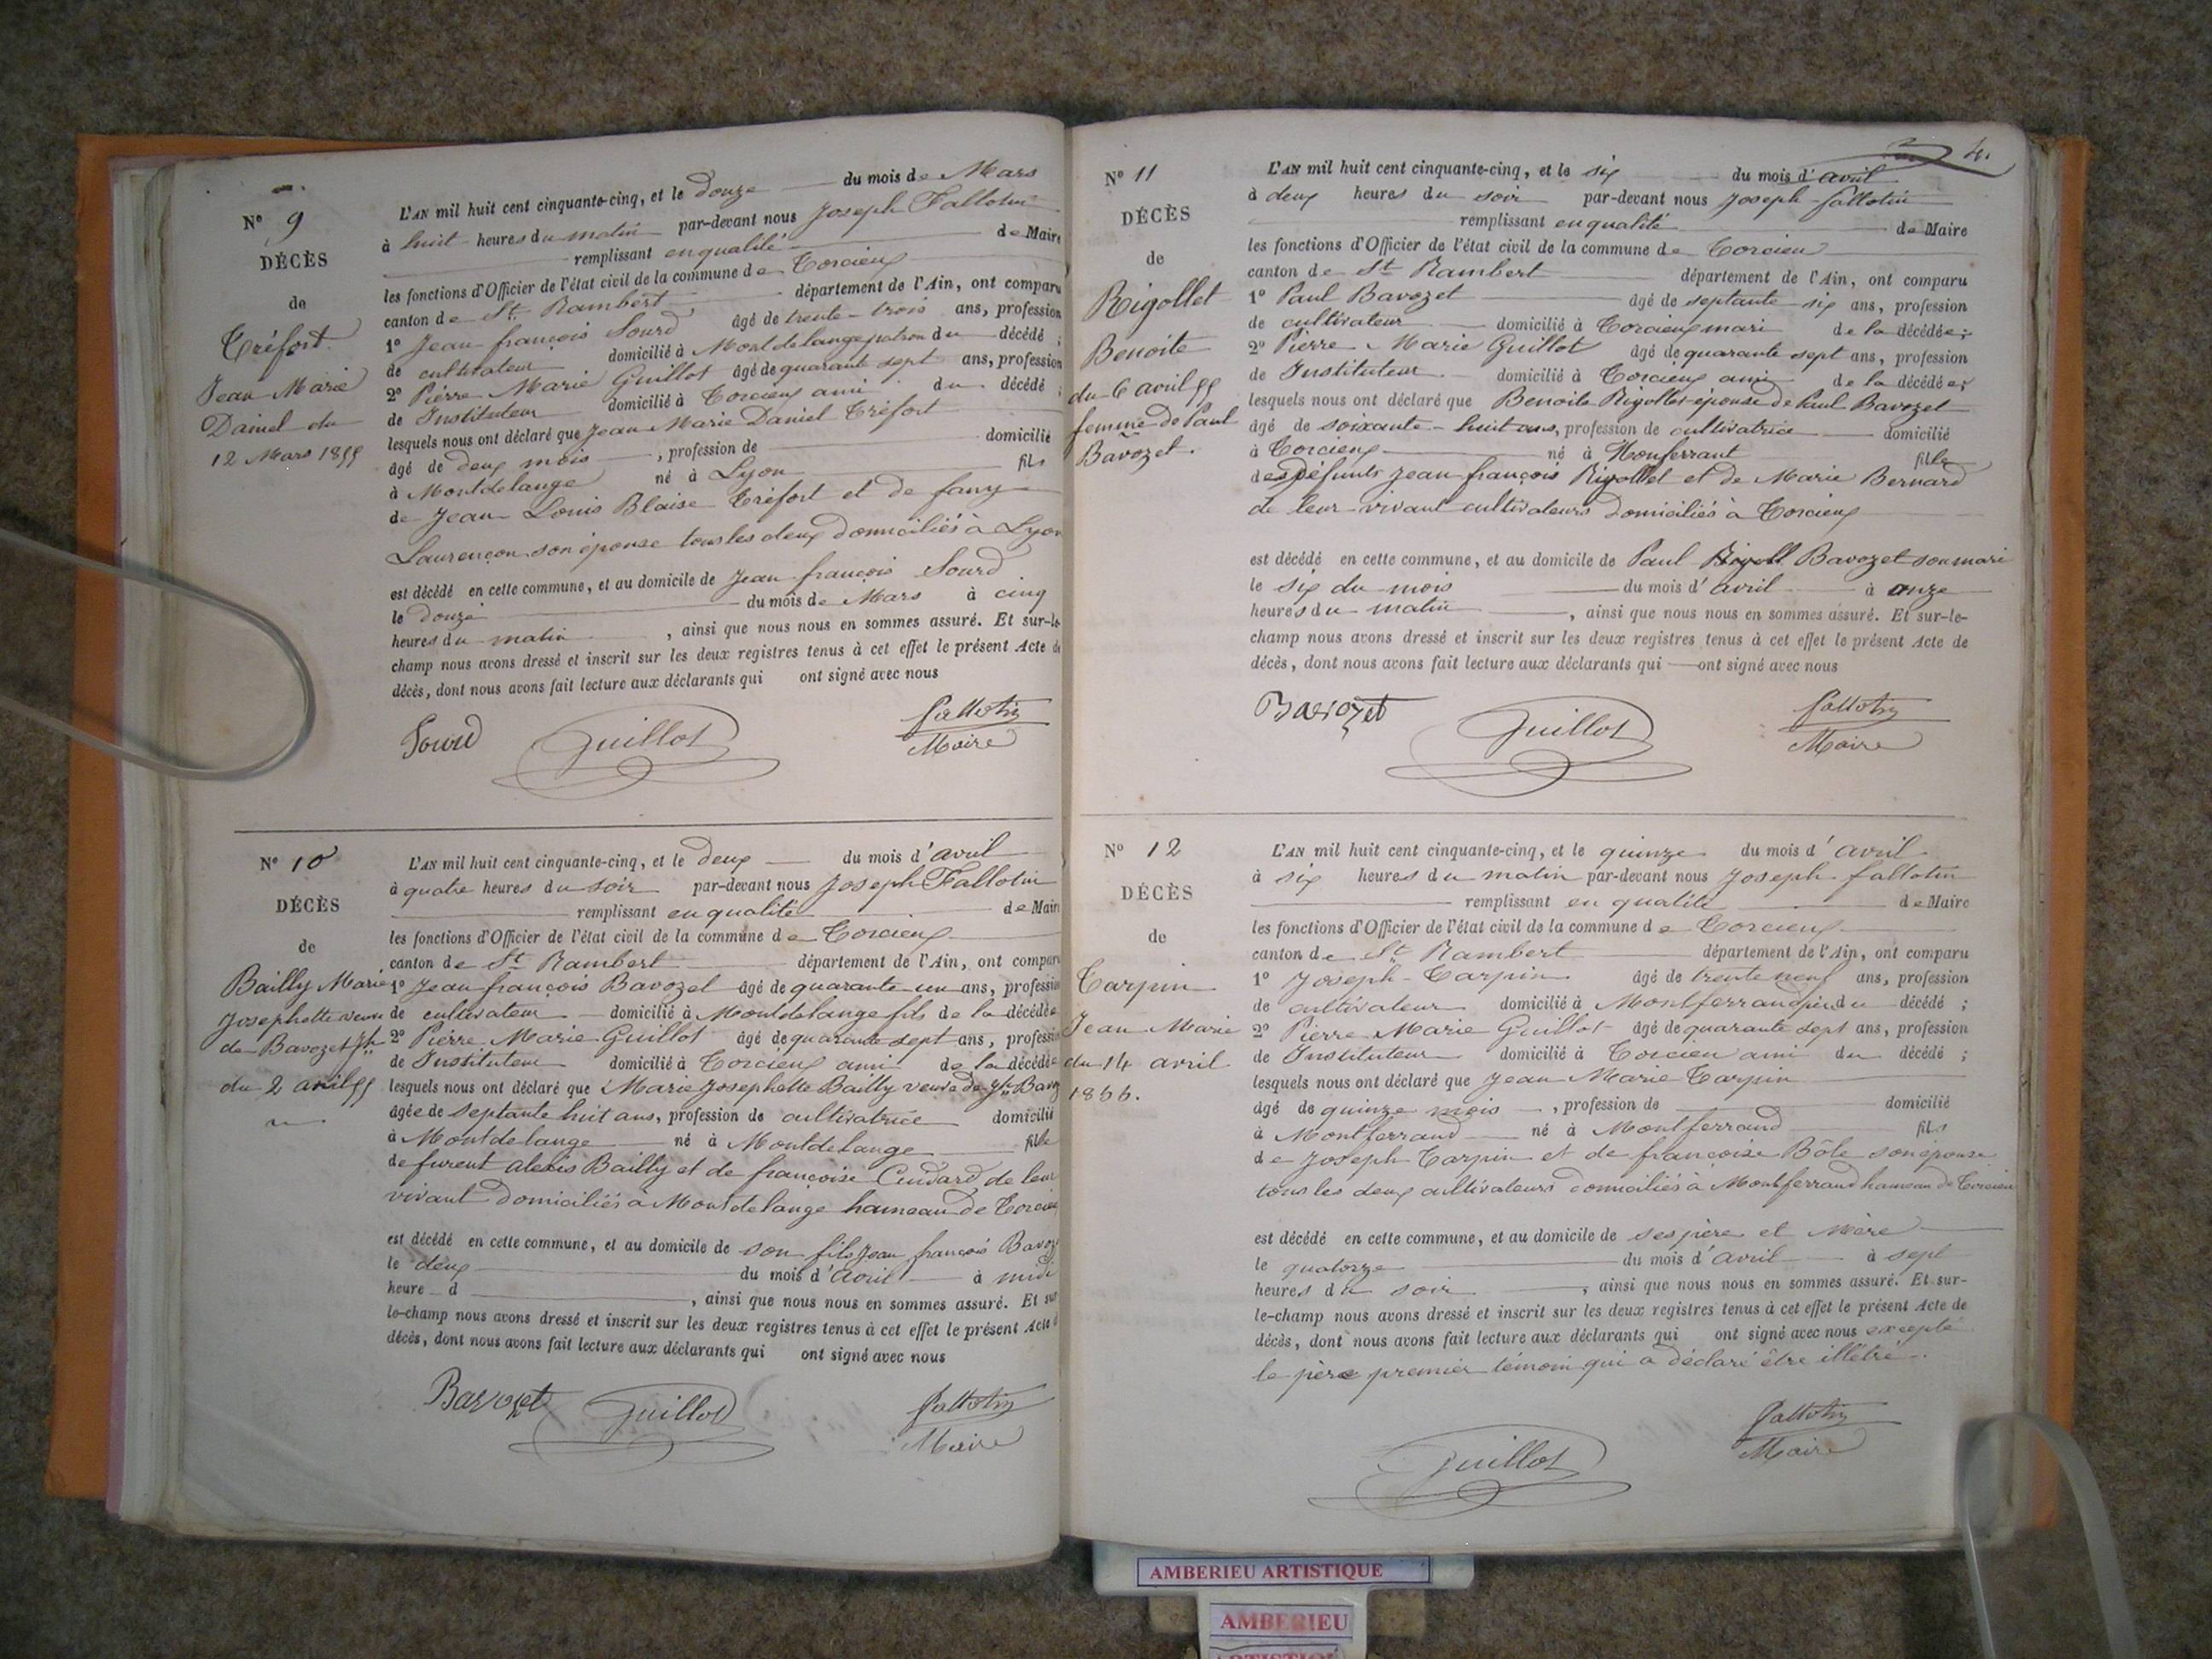 N° 9
DÉCÈS
de
Tréfort
Jean Marie
Daniel du
12 Mars 1855
L'AN mil huit cent cinquante-cinq, et le douze du mois de Mars
à huit heures du matin par-devant nous Joseph Fallotin
remplissant en qualité de Maire
les fonctions d'Officier de l'état civil de la commune de Torcieu
canton de St Rambert département de l'Ain, ont comparu
1° Jean françois Sourd âgé de trente-trois ans, profession
de cultivateur domicilié à Montdelange patron du décédé ;
2° Pierre Marie Guillot âgé de quarante sept ans, profession
de Instituteur domicilié à Torcieu ami du décédé ;
lesquels nous ont déclaré que Jean Marie Daniel Tréfort
âgé de deux mois, profession de domicilié
à Montdelange né à Lyon fils
de Jean Louis Blaise Tréfort et de fany
Laurençon son épouse tous les deux domiciliés à Lyon
est décédé en cette commune, et au domicile de Jean françois Sourd
le douze du mois de Mars à cinq
heures du matin, ainsi que nous nous en sommes assuré. Et sur-le-
champ nous avons dressé et inscrit sur les deux registres tenus à cet effet le présent Acte de
décès, dont nous avons fait lecture aux déclarants qui ont signé avec nous
Sourd Guillot fallotin
Maire
N° 10
DÉCÈS
de
Bailly Marie
Josephette veuve
de Bavozet Jh
du 2 avril 55
L'AN mil huit cent cinquante-cinq, et le deux du mois d'avril
à quatre heures du soir par-devant nous Joseph Fallotin
remplissant en qualité de Maire
les fonctions d'Officier de l'état civil de la commune de Torcieu
canton de St Rambert département de l'Ain, ont comparu
1° Jean françois Bavozet âgé de quarante un ans, profession
de cultivateur domicilié à Montdelange fils de la décédée
2° Pierre Marie Guillot âgé de quarante sept ans, profession
de Instituteur domicilié à Torcieu ami de la décédée
lesquels nous ont déclaré que Marie Josephette Bailly veuve de Jh Bavoz
âgée de septante huit ans, profession de cultivatrice domicilié
à Montdelange né à Montdelange fille
de furent alexis Bailly et de françoise de leur
vivant domiciliés à Montdelange hameau de Torcieu
est décédé en cette commune, et au domicile de son fils Jean françois Bavoz
le deux du mois d'avril à midi
heure d , ainsi que nous nous en sommes assuré. Et sur
le-champ nous avons dressé et inscrit sur les deux registres tenus à cet effet le présent Acte d
décès, dont nous avons fait lecture aux déclarants qui ont signé avec nous
Bavozet Guillot fallotin
Maire
4.
N° 11
DÉCÈS
de
Rigollet
Benoite
du 6 avril 55
femme de Paul
Bavozet.
L'AN mil huit cent cinquante-cinq, et le six du mois d'avril
à deux heures du soir par-devant nous Joseph fallotin
remplissant en qualité de Maire
les fonctions d'Officier de l'état civil de la commune de Torcieu
canton de St Rambert département de l'Ain, ont comparu
1° Paul Bavozet âgé de septante six ans, profession
de cultivateur domicilié à Torcieu mari de la décédée ;
2° Pierre Marie Guillot âgé de quarante sept ans, profession
de Instituteur domicilié à Torcieu ami de la décédée ;
lesquels nous ont déclaré que Benoite Rigollet épouse de Paul Bavozet
âgé de soixante-huit ans, profession de cultivatrice domicilié
à Torcieu né à Monferrant fille
des défunts Jean françois Rigollet et de Marie Bernard
de leur vivant cultivateurs domiciliés à Torcieu
est décédé en cette commune, et au domicile de Paul Bavozet son mari
le six du mois du mois d'avril à onze
heures du matin, ainsi que nous nous en sommes assuré. Et sur-le-
champ nous avons dressé et inscrit sur les deux registres tenus à cet effet le présent Acte de
décès, dont nous avons fait lecture aux déclarants qui ont signé avec nous
Bavozet Guillot fallotin
Maire
N° 12
DÉCÈS
de
Tarpin
Jean Marie
du 14 avril
1855.
L'AN mil huit cent cinquante-cinq, et le quinze du mois d'avril
à six heures du matin par-devant nous Joseph fallotin
remplissant en qualité de Maire
les fonctions d'Officier de l'état civil de la commune de Torcieu
canton de St Rambert département de l'Ain, ont comparu
1° Joseph Tarpin âgé de trente neuf ans, profession
de cultivateur domicilié à Montferrand père du décédé ;
2° Pierre Marie Guillot âgé de quarante sept ans, profession
de Instituteur domicilié à Torcieu ami du décédé ;
lesquels nous ont déclaré que Jean Marie Tarpin
âgé de quinze mois, profession de domicilié
à Montferrand né à Montferrand fils
de Joseph Tarpin et de françoise Bôle son épouse
tous les deux cultivateurs domiciliés à Montferrand hameau de Torcieu
est décédé en cette commune, et au domicile de ses père et Mère
le quatorze du mois d'avril à sept
heures du soir, ainsi que nous nous en sommes assuré. Et sur-
le-champ nous avons dressé et inscrit sur les deux registres tenus à cet effet le présent Acte de
décès, dont nous avons fait lecture aux déclarants qui ont signé avec nous excepté
le père premier témoin qui a déclaré être illétré.
Guillot fallotin
Maire
AMBERIEU ARTISTIQUE
AMBERIEU
ARTISTIQUE